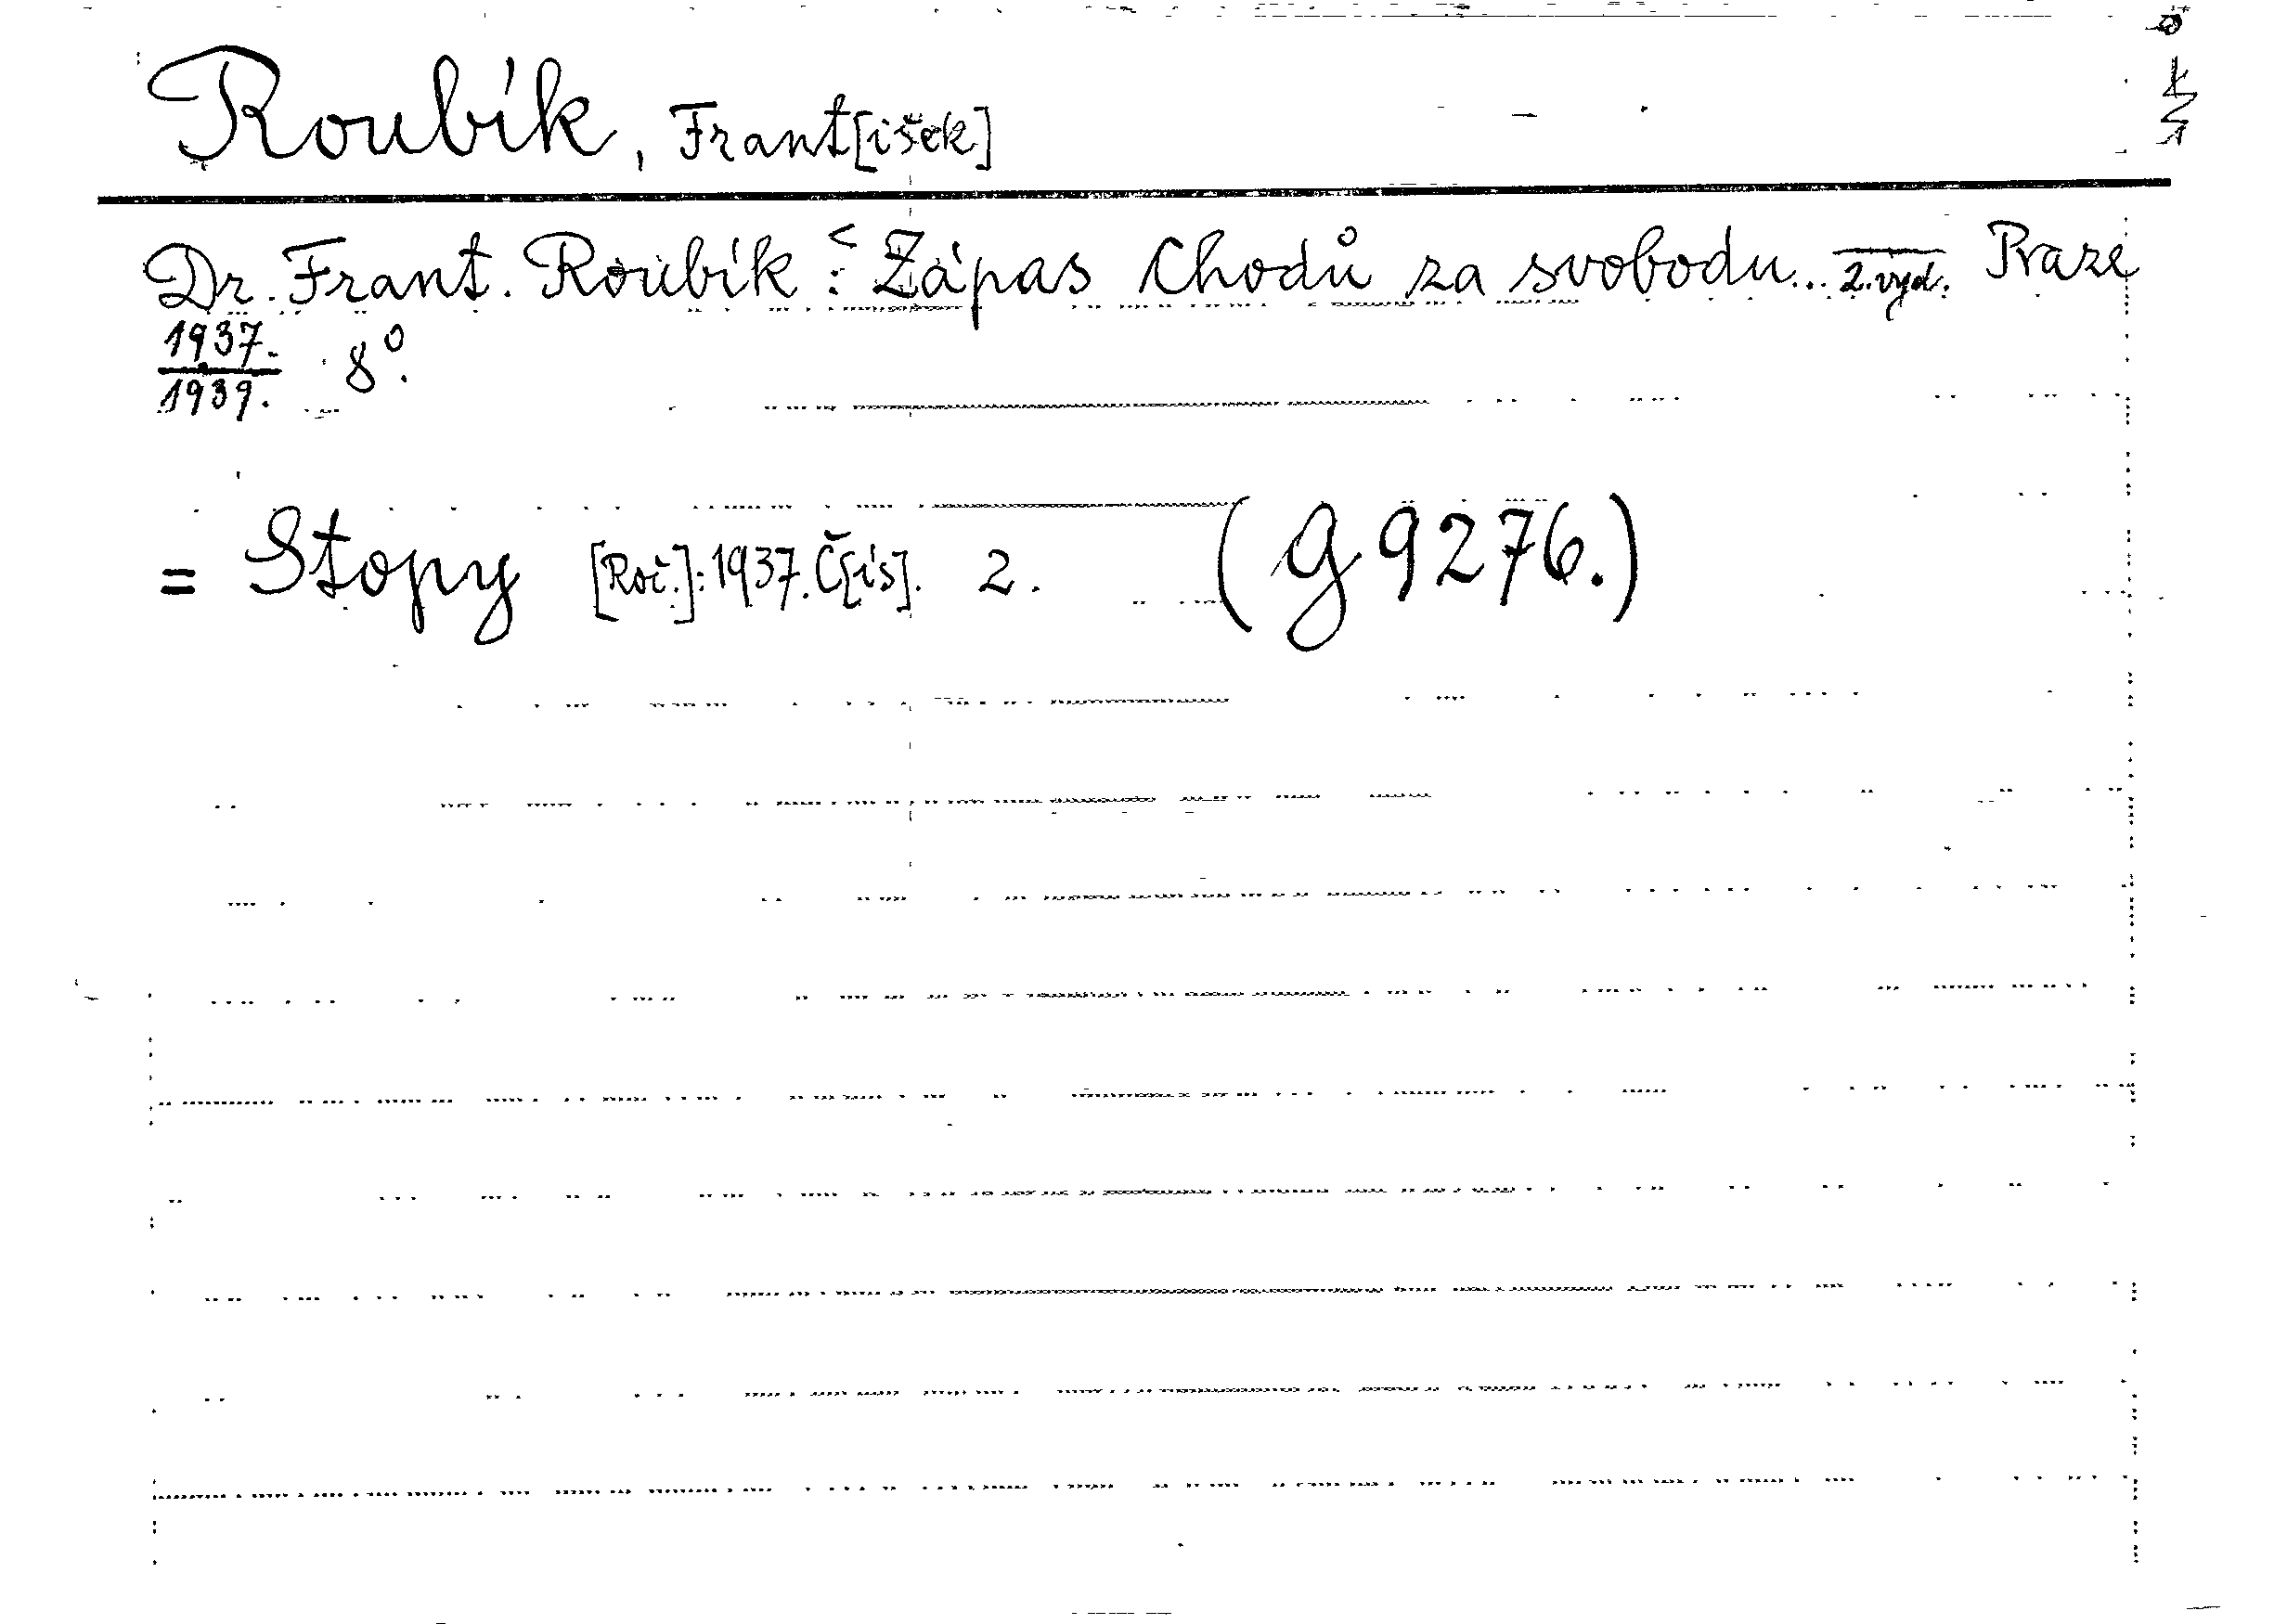 Roubík, Frant[išek]
Dr. Frant. Roubík: Zápas Chodů za svobodu... 2. vyd. Praze
1937. 8°.
1939.
= Stopy [Roč.]: 1937. Č[ís]. 2. (g 9276.)